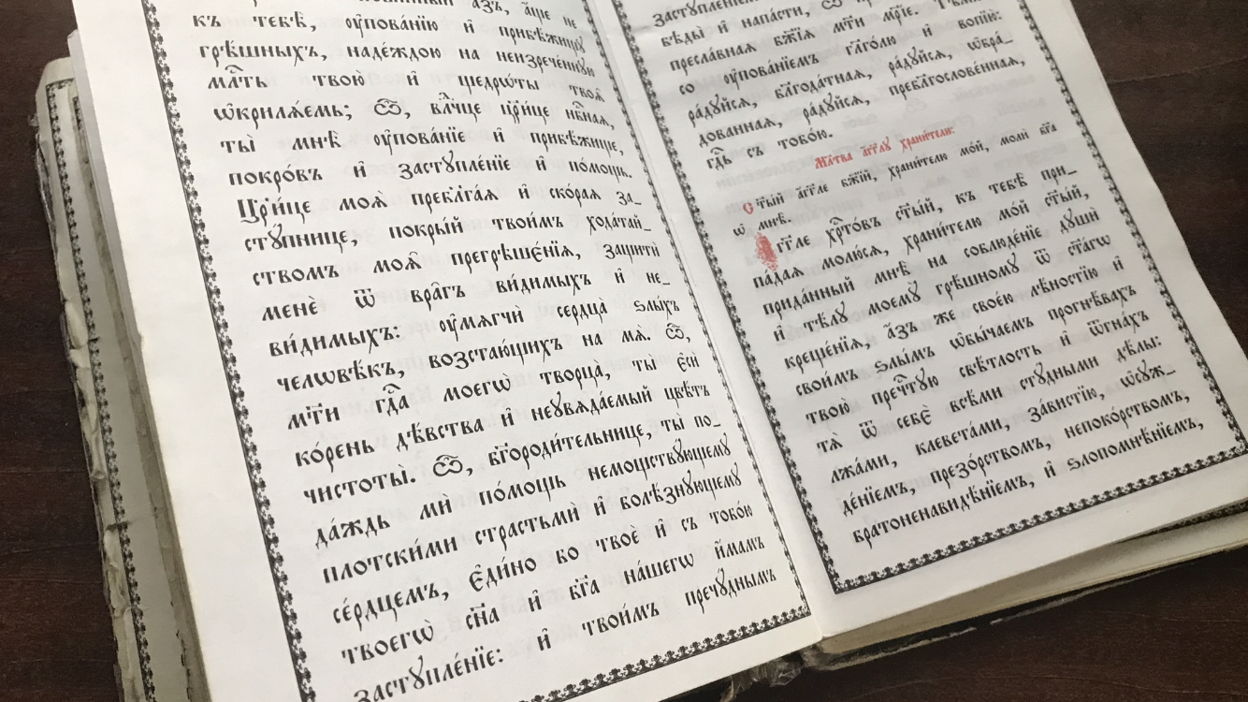 а҆́зъ, а҆́ще не
къ тебѣ̀, ᲂу҆пова́нїю и҆ прибѣ́жищꙋ
грѣ́шныхъ, наде́ждою на неизрече́ннꙋю
млⷭ҇ть твою̀ и҆ щедрѡ́ты твоѧ̑
ѡ҆крилѧ́емь; ѽ, влⷣчце цр҃и́це нбⷭ҇наѧ,
ты̀ мнѣ̀ ᲂу҆пова́нїе и҆ прибѣ́жище,
покро́въ и҆ застꙋпле́нїе и҆ по́мощь.
Цр҃и́це моѧ̀ пребл҃га́ѧ и҆ ско́раѧ за_
стꙋ́пнице, покры́й твои́мъ хода́тай_
ствомъ моѧ̑ прегрѣшє́нїѧ, защитѝ
менѐ ѿ вра̑гъ ви́димыхъ и҆ не_
ви́димыхъ: ᲂу҆мѧгчѝ сердца̀ ѕлы́хъ
человѣ̑къ, возстаю́щихъ на мѧ̀. ѽ,
мт҃и гдⷭ҇а моегѡ̀ творца̀, ты̀ є҆сѝ
ко́рень дѣ́вства и҆ неꙋвѧда́емый цвѣ́тъ
чистоты̀. ѽ, бг҃ороди́тельнице, ты̀ по_
да́ждь мѝ по́мощь немощствꙋ́ющемꙋ
плотски́ми страстьмѝ и҆ болѣ́знꙋющемꙋ
се́рдцемъ, є҆ди́но бо твоѐ и҆ съ тобо́ю
твоегѡ̀ сн҃а и҆ бг҃а на́шегѡ и҆́мамъ
застꙋпле́нїе: и҆ твои́мъ пречꙋ́днымъ
застꙋпле́нїем
бѣды̀ и҆ напа́сти, ѽ мт҃и мр҃і́е.
пресла́внаѧ бж҃їѧ
со ᲂу҆пова́нїемъ гл҃го́лю и҆ вопїю̀:
ра́дꙋйсѧ, бл҃года́тнаѧ, ра́дꙋйсѧ, ѡ҆бра_
до́ваннаѧ, ра́дꙋйсѧ, пребл҃гослове́ннаѧ,
гдⷭ҇ь съ тобо́ю.
Млт҃ва а҆́гг҃лꙋ храни́телю:
Ст҃ы́й а҆́гг҃ле бж҃їй, храни́телю мо́й, молѝ бг҃а
ѡ҆ мнѣ̀.
А҆́гг҃ле хрⷭ҇то́въ ст҃ы́й, къ тебѣ̀ при_
па́даѧ молю́сѧ, храни́телю мо́й ст҃ы́й,
прида́нный мнѣ̀ на соблюде́нїе дꙋшѝ
и҆ тѣ́лꙋ моемꙋ̀ грѣ́шномꙋ ѿ ст҃а́гѡ
креще́нїѧ, а҆́зъ же свое́ю лѣ́ностїю и҆
свои́мъ ѕлы́мъ ѡ҆бы́чаемъ прогнѣ́вахъ
твою̀ пречⷭ҇тꙋю свѣ́тлость и҆ ѿгна́хъ
тѧ̀ ѿ себє̀ всѣ́ми стꙋ́дными дѣ́лы:
лжа́ми, клевета́ми, за́вистїю, ѡ҆сꙋж_
де́нїемъ, презо́рствомъ, непоко́рствомъ,
братоненави́дѣнїемъ, и҆ ѕлопомнѣ́нїемъ,